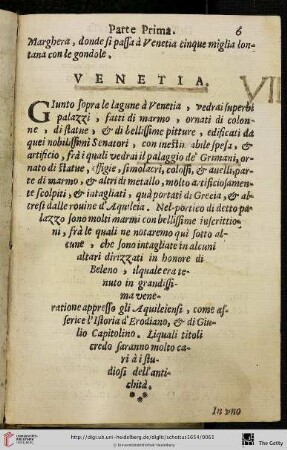 Parte Prima. 6
Marghera, donde si passa à Venetia cinque miglia lon-
tana con le gondole.
VENETIA.
VII
Giunto sopra le lagune à Venetia, vedrai superbi
palazzi, fatti di marmo, ornati di colon-
ne, di statue, & di bellissime pitture, edificati da
quei nobilissimi Senatori, con inestimabile spesa, &
artificio, frà i quali vedrai il palaggio de' Grimani, or-
nato di statue, effigie, simolacri, colossi, & auelli, par-
te di marmo, & altri di metallo, molto artificiosamen-
te scolpiti, & intagliati, quà portati di Grecia, & al-
tresì dalle rouine d'Aquileia. Nel portico di detto pa-
lazzo sono molti marmi con bellissime inscrittio-
ni, frà le quali ne notaremo quì sotto al-
cune, che sono intagliate in alcuni
altari dirizzati in honore di
Beleno, il quale era te-
nuto in grandissi-
ma vene-
ratione appresso gli Aquileiensi, come as-
serisce l'Istoria d'Erodiano, & di Giu-
lio Capitolino. Li quali titoli
credo saranno molto ca-
ri à i stu-
diosi dell'anti-
chità.
In vno
http://digi.ub.uni-heidelberg.de/diglit/schottus1654/0061
© Universitätsbibliothek Heidelberg
UNIVERSITÄTS-
BIBLIOTHEK
HEIDELBERG
The Getty